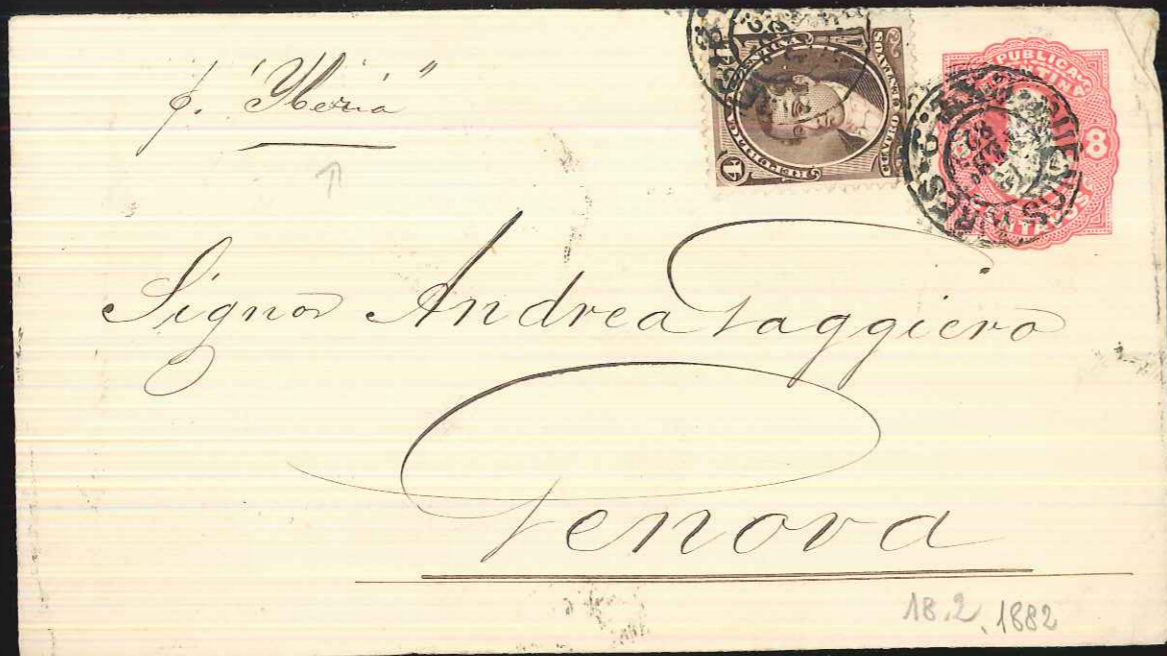 p. "Yberia"
REPUBLICA ARGENTINA
8
CENTAVOS
BUENOS AIRES
4
Signor Andrea Faggiero
Genova
18.2.1882